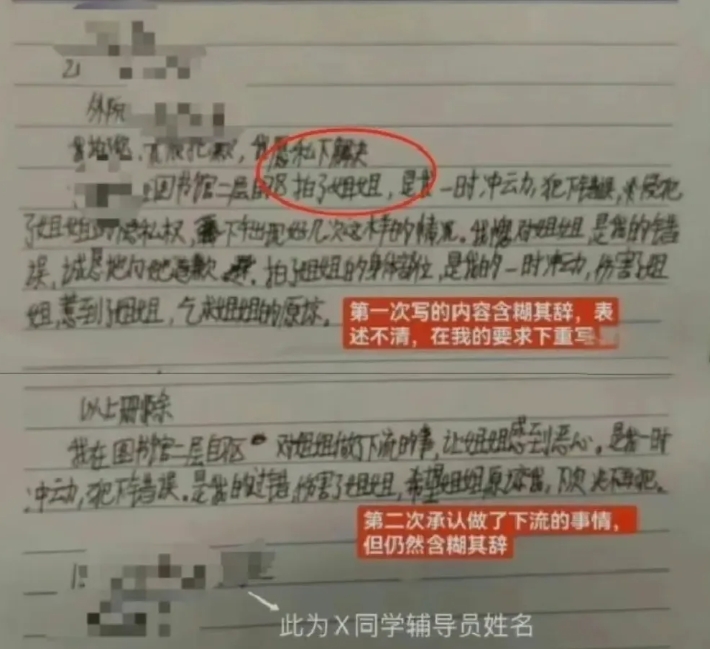 外院
我愿私下解决
图书馆二层自习 拍了姐姐，是我一时冲云力，犯下错误，侵犯
了姐姐的隐私权，下车出现好几次这样的情况。我愧对姐姐，是我的错
误，诚恳地向她道歉。拍了姐姐的身体部位，是我的一时冲动，伤害了姐
姐，惹到了姐姐，乞求姐姐的原谅。
第一次写的内容含糊其辞，表
述不清，在我的要求下重写
以上删除
我在图书馆二层自习区 对姐姐做了下流的事，让姐姐感到恶心。是我一时
冲云力，犯下错误。是我的过错，伤害了姐姐，希望姐姐原谅我，下次决不再犯。
第二次承认做了下流的事情，
但仍然含糊其辞
此为X同学辅导员姓名